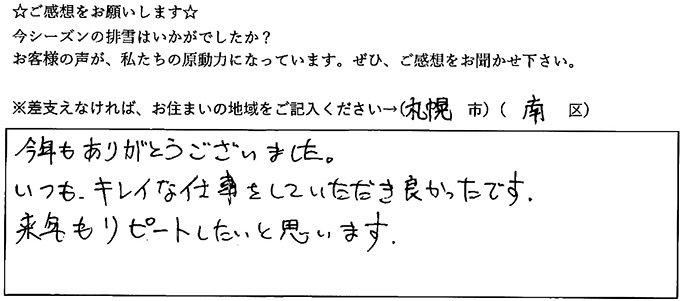 ☆ご感想をお願いします☆
今シーズンの排雪はいかがでしたか？
お客様の声が、私たちの原動力になっています。ぜひ、ご感想をお聞かせ下さい。
※差支えなければ、お住まいの地域をご記入ください→(札幌 市)( 南 区)
今年もありがとうございました。
いつも、キレイな仕事をしていただき良かったです.
来年もリピートしたいと思います.